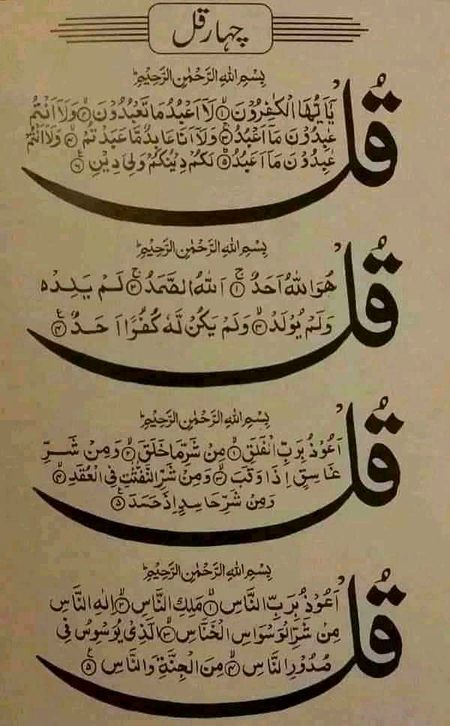 چہار قل
بِسْمِ اللهِ الرَّحْمٰنِ الرَّحِيْمِ
قُلْ
يٰٓاَيُّهَا الْكٰفِرُوْنَ ۝۱ لَآ اَعْبُدُ مَا تَعْبُدُوْنَ ۝۲ وَلَآ اَنْتُمْ
عٰبِدُوْنَ مَآ اَعْبُدُ ۝۳ وَلَآ اَنَا عَابِدٌ مَّا عَبَدْتُّمْ ۝۴ وَلَآ اَنْتُمْ
عٰبِدُوْنَ مَآ اَعْبُدُ ۝۵ لَكُمْ دِيْنُكُمْ وَلِيَ دِيْنِ ۝۶
بِسْمِ اللهِ الرَّحْمٰنِ الرَّحِيْمِ
قُلْ
هُوَ اللهُ اَحَدٌ ۝۱ اَللهُ الصَّمَدُ ۝۲ لَمْ يَلِدْ ۥۙ
وَلَمْ يُوْلَدْ ۝۳ وَلَمْ يَكُنْ لَّهٗ كُفُوًا اَحَدٌ ۝۴
بِسْمِ اللهِ الرَّحْمٰنِ الرَّحِيْمِ
قُلْ
اَعُوْذُ بِرَبِّ الْفَلَقِ ۝۱ مِنْ شَرِّ مَا خَلَقَ ۝۲ وَمِنْ شَرِّ
غَاسِقٍ اِذَا وَقَبَ ۝۳ وَمِنْ شَرِّ النَّفّٰثٰتِ فِي الْعُقَدِ ۝۴
وَمِنْ شَرِّ حَاسِدٍ اِذَا حَسَدَ ۝۵
بِسْمِ اللهِ الرَّحْمٰنِ الرَّحِيْمِ
قُلْ
اَعُوْذُ بِرَبِّ النَّاسِ ۝۱ مَلِكِ النَّاسِ ۝۲ اِلٰهِ النَّاسِ ۝۳
مِنْ شَرِّ الْوَسْوَاسِ الْخَنَّاسِ ۝۴ الَّذِيْ يُوَسْوِسُ فِيْ
صُدُوْرِ النَّاسِ ۝۵ مِنَ الْجِنَّةِ وَالنَّاسِ ۝۶